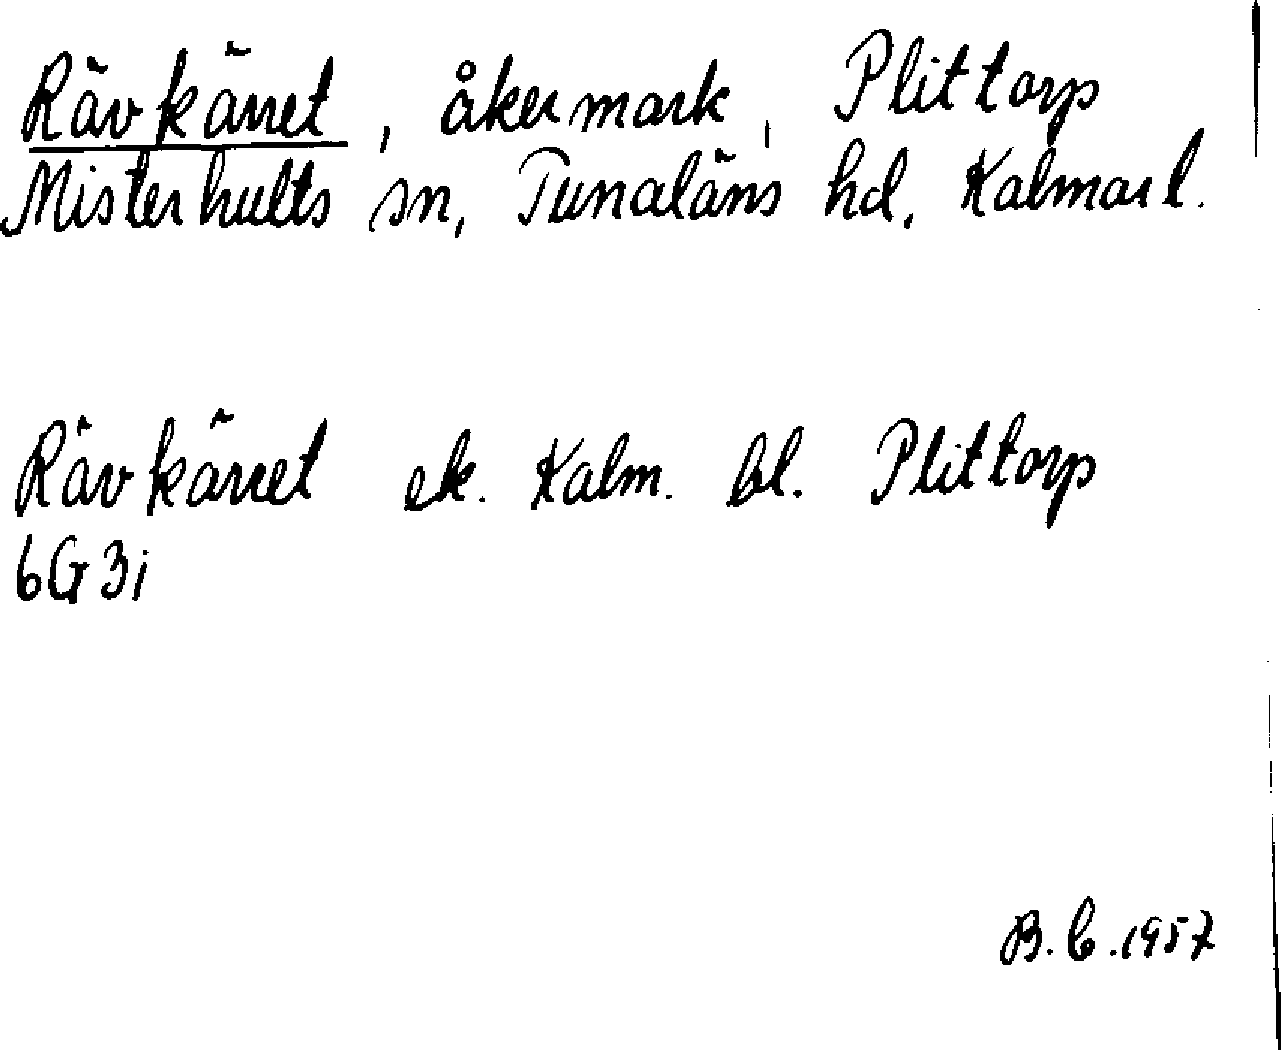 Rävkärret, åkermark, Plittorp
Misterhults sn, Tunaläns hd, Kalmar l.
Rävkärret ek. Kalm. bl. Plittorp
6G3i
B. C. 1957